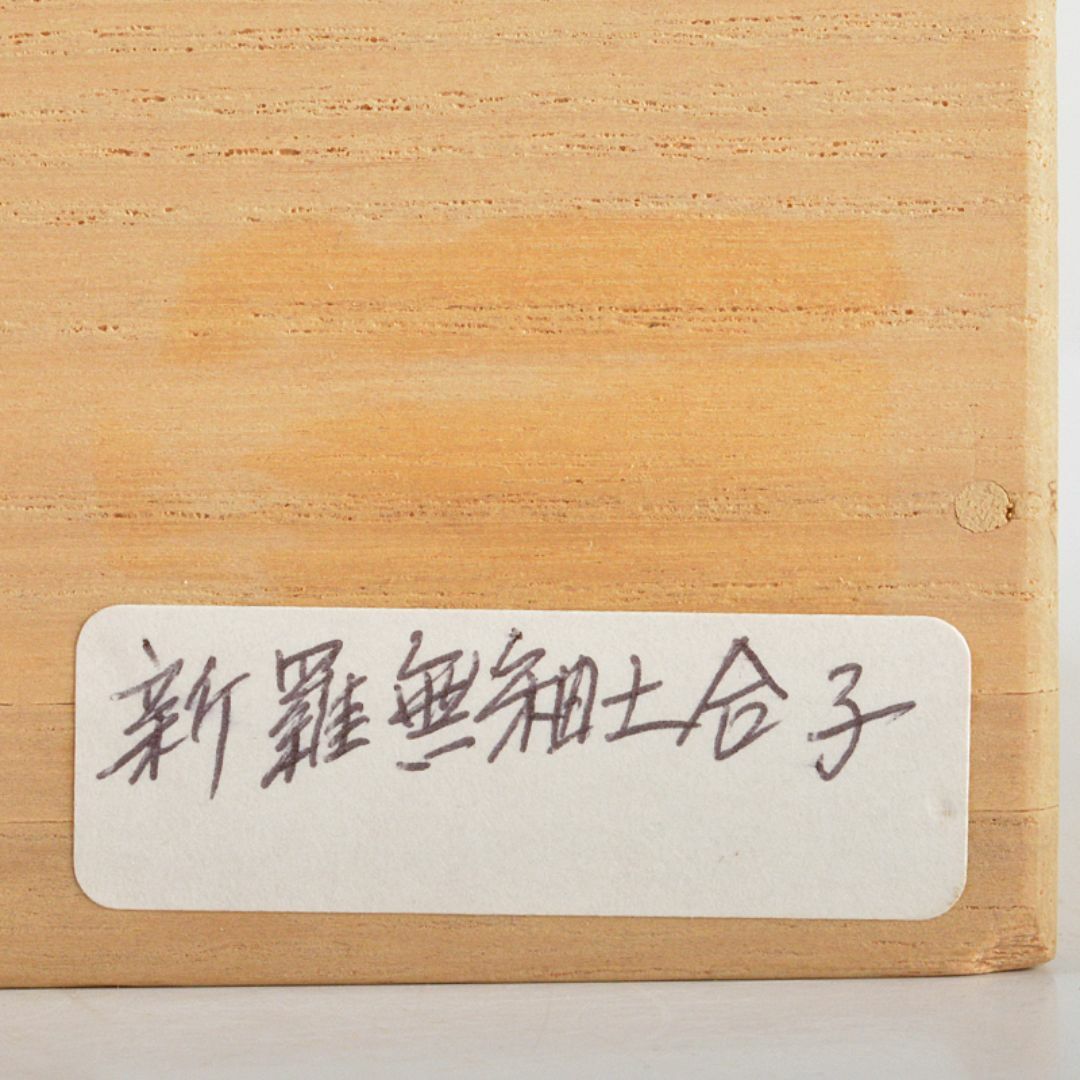 新羅無釉土合子